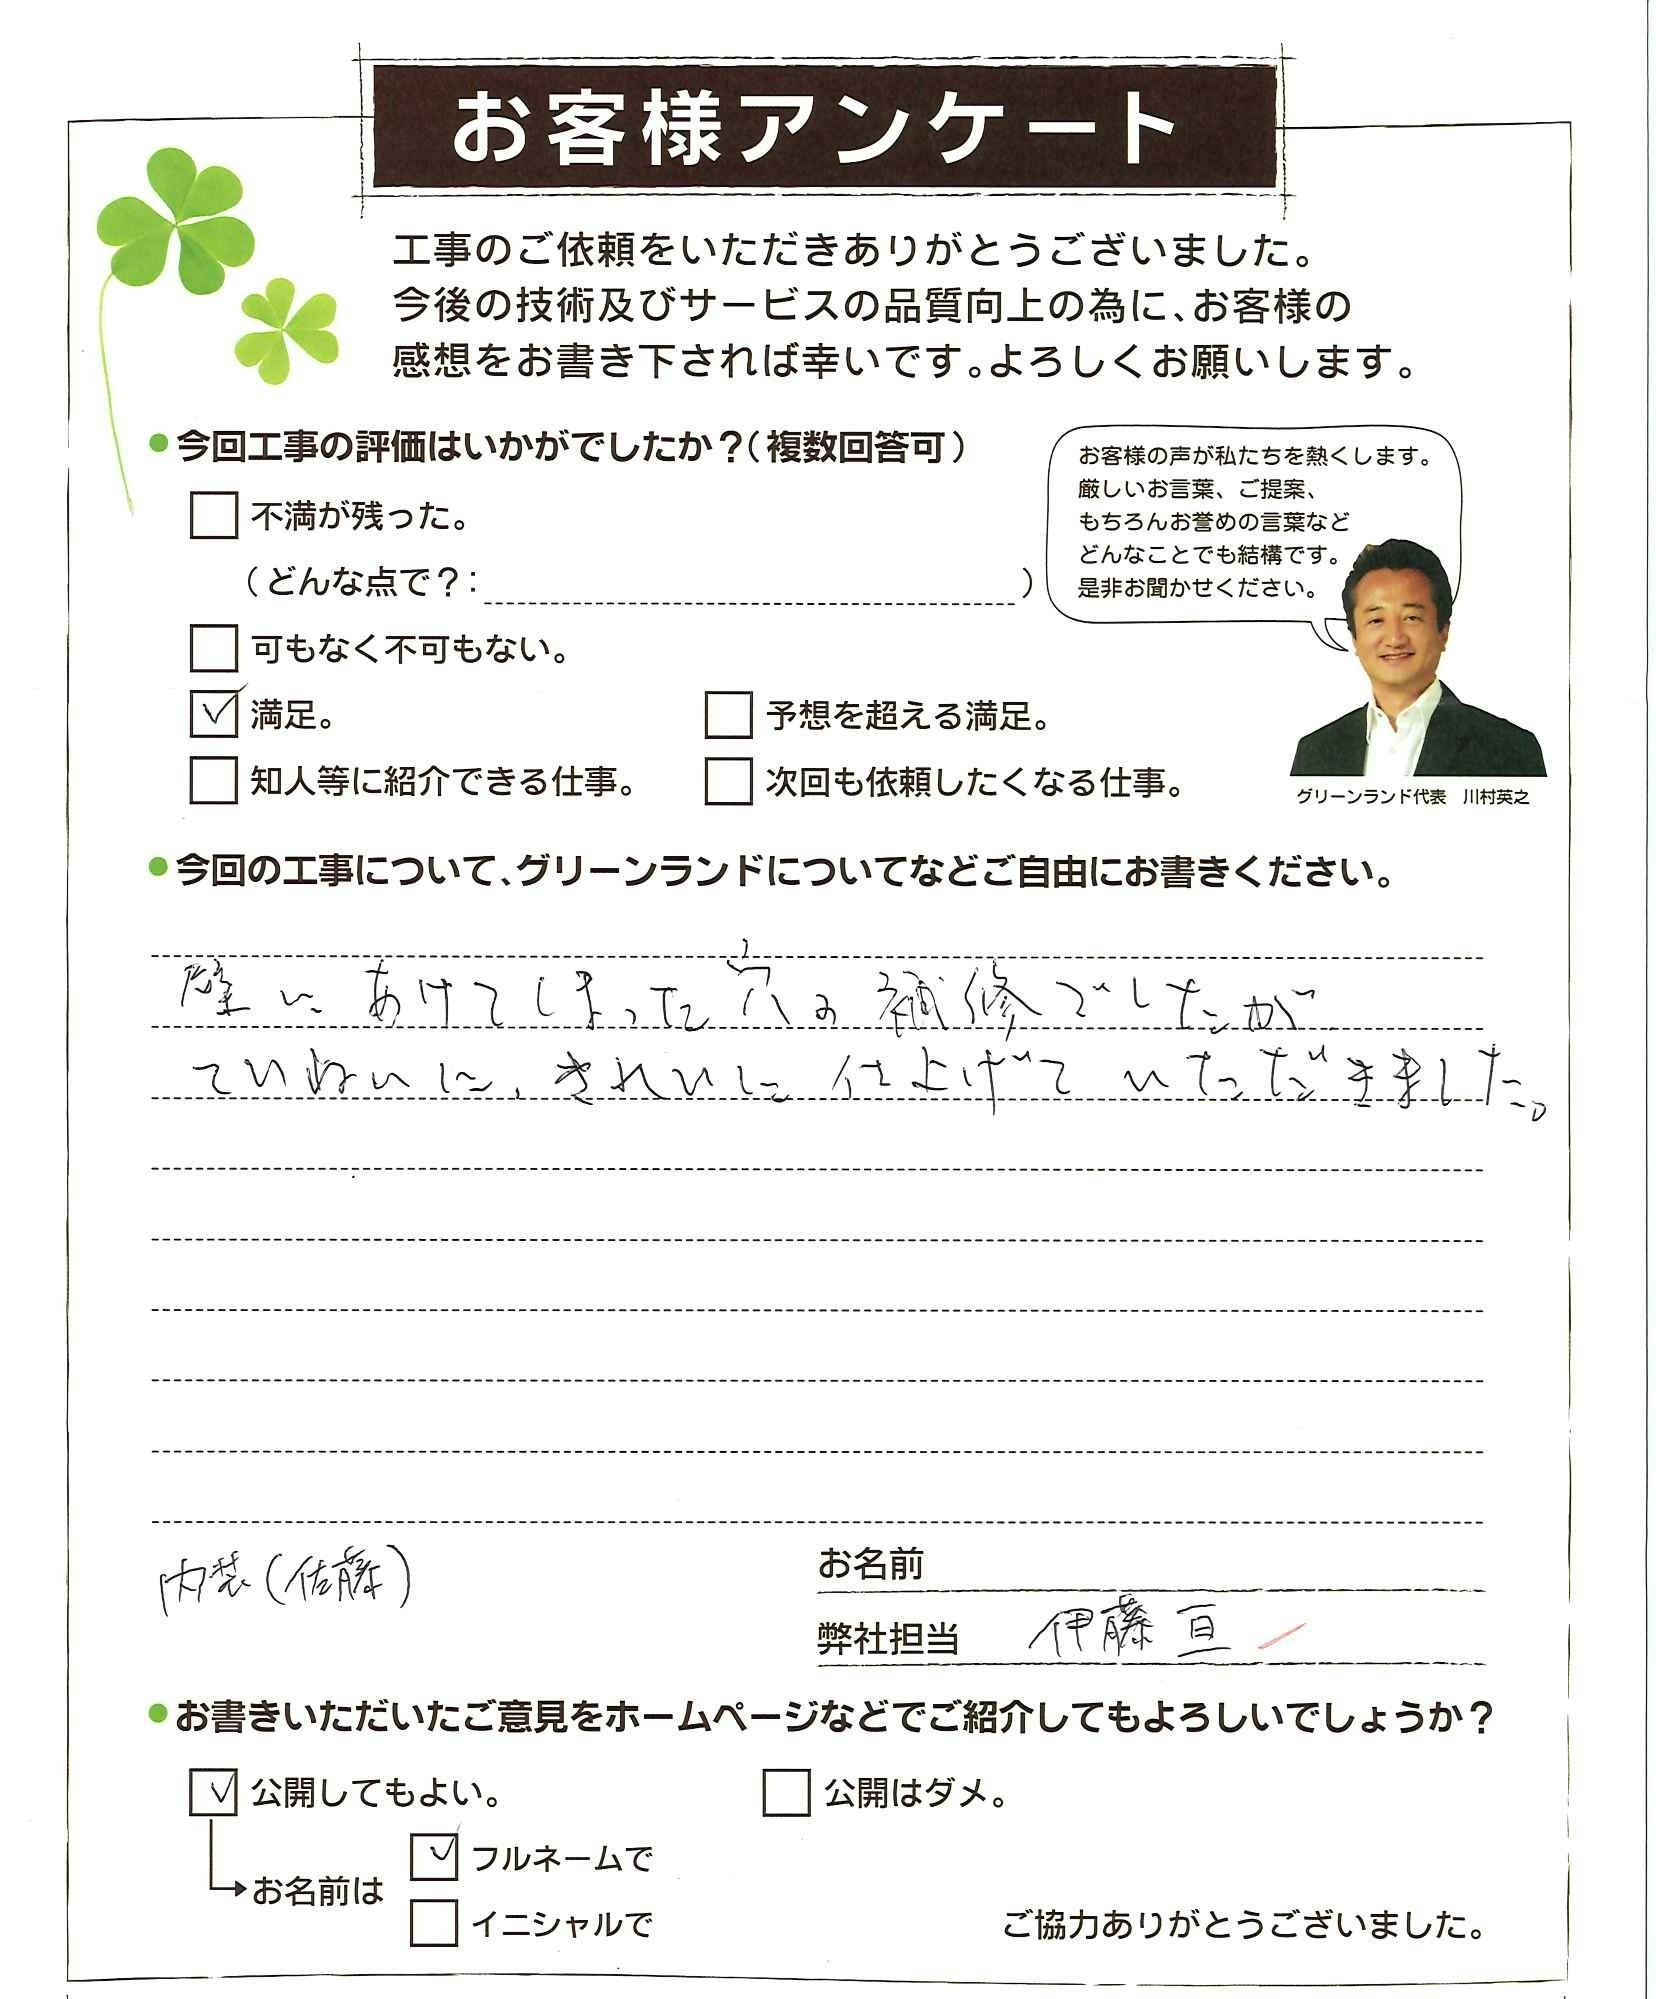 お客様アンケート
工事のご依頼をいただきありがとうございました。
今後の技術及びサービスの品質向上の為に、お客様の
感想をお書き下されば幸いです。よろしくお願いします。
●今回工事の評価はいかがでしたか？（複数回答可）
不満が残った。
（どんな点で？：　）
可もなく不可もない。
満足。
予想を超える満足。
知人等に紹介できる仕事。
次回も依頼したくなる仕事。
お客様の声が私たちを熱くします。
厳しいお言葉、ご提案、
もちろんお誉めの言葉など
どんなことでも結構です。
是非お聞かせください。
グリーンランド代表　川村英之
●今回の工事について、グリーンランドについてなどご自由にお書きください。
壁にあけてしまった穴の補修でしたが
ていねいに、きれいに仕上げていただきました。
内装（佐藤）
お名前
弊社担当　伊藤 亘
●お書きいただいたご意見をホームページなどでご紹介してもよろしいでしょうか？
公開してもよい。
公開はダメ。
お名前は
フルネームで
イニシャルで
ご協力ありがとうございました。